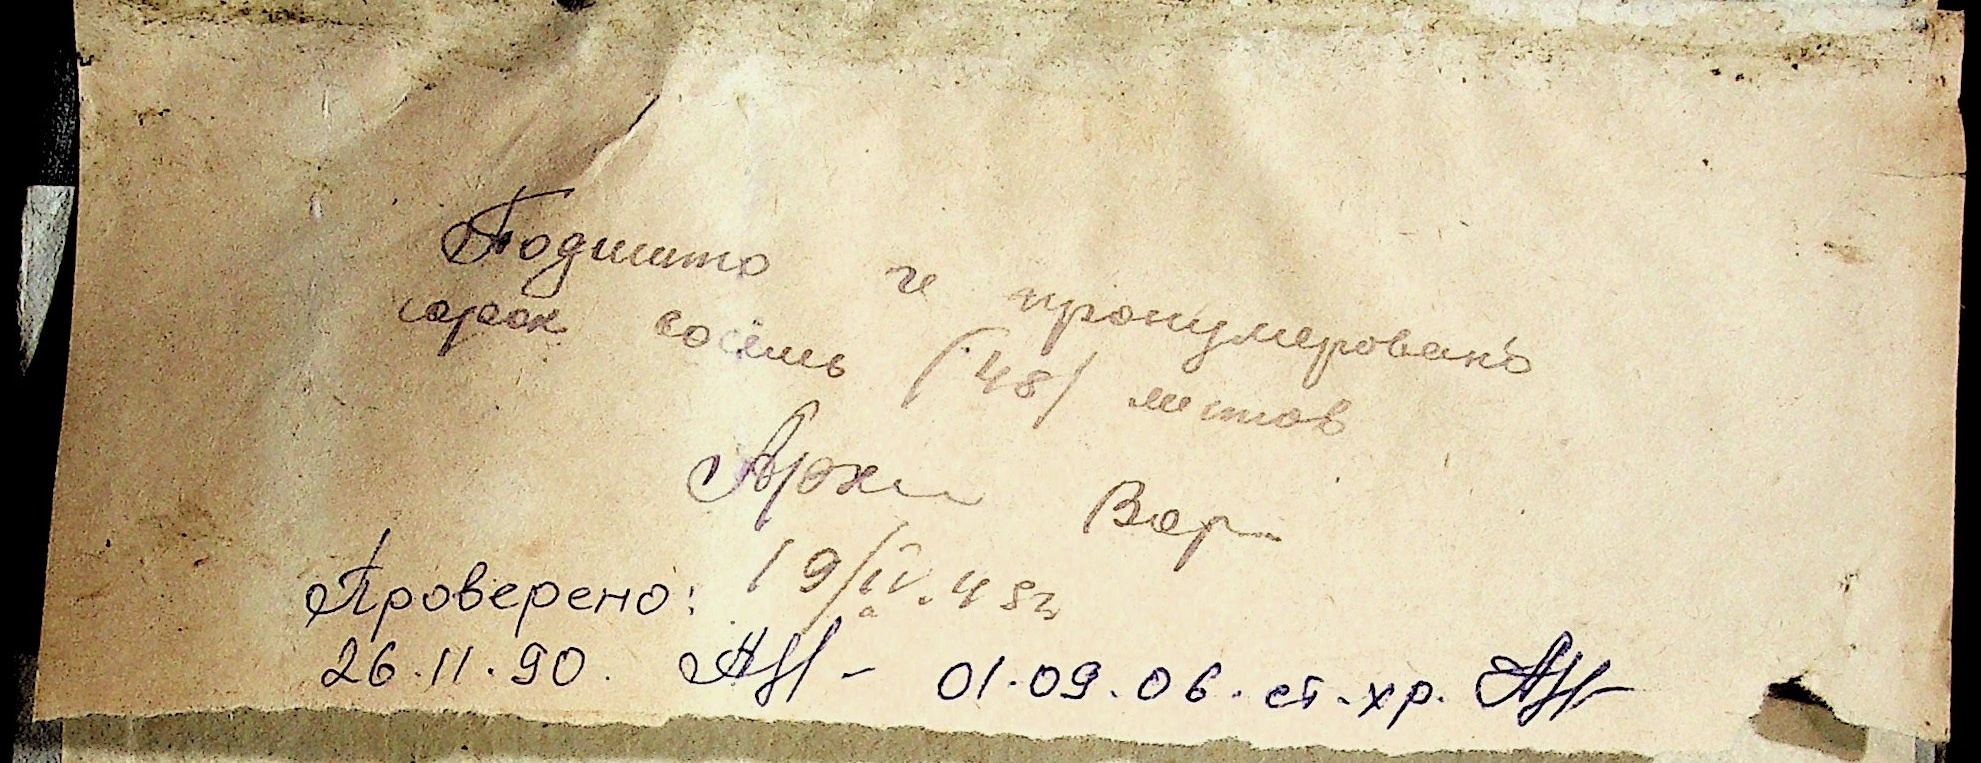 Подшито и пронумеровано
сорок восемь (48) листов
Арх Вар
19/IV.48г
Проверено:
26.11.90. 01.09.06. ст.хр.